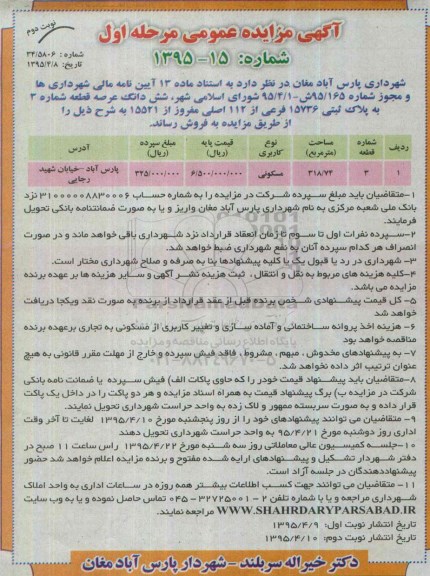 نوبت دوم
آگهی مزایده عمومی مرحله اول
شماره: ۱۵- ۱۳۹۵
شماره: ۳۴/۵۸۰۶
تاریخ: ۱۳۹۵/۴/۸
شهرداری پارس آباد مغان در نظر دارد به استناد ماده ۱۳ آیین نامه مالی شهرداری ها
و مجوز شماره ۹۵/۱۶۵ش-۹۵/۴/۱ شورای اسلامی شهر، شش دانگ عرصه قطعه شماره ۳
به پلاک ثبتی ۱۵۷۳۶ فرعی از ۱۱۲ اصلی مفروز از ۱۵۵۲۱ به شرح ذیل را
از طریق مزایده به فروش رساند.
ردیف شماره قطعه مساحت (مترمربع) نوع کاربری قیمت پایه (ریال) مبلغ سپرده (ریال) آدرس
۱ ۳ ۳۱۸/۷۳ مسکونی ۶/۵۰۰/۰۰۰/۰۰۰ ۳۲۵/۰۰۰/۰۰۰ پارس آباد –خیابان شهید رجایی
۱-متقاضیان باید مبلغ سپرده شرکت در مزایده را به شماره حساب ۳۱۰۰۰۰۸۸۳۰۰۰۶ نزد
بانک ملی شعبه مرکزی به نام شهرداری پارس آباد مغان واریز و یا به صورت ضمانتنامه بانکی تحویل
فرمایند.
۲-سپرده نفرات اول تا سوم تا زمان انعقاد قرارداد نزد شهرداری باقی خواهد ماند و در صورت
انصراف هر کدام سپرده آنان به نفع شهرداری ضبط خواهد شد.
۳- شهرداری در رد یا قبول یک یا کلیه پیشنهادها بنا به صرفه و صلاح شهرداری مختار است.
۴-کلیه هزینه های مربوط به نقل و انتقال ، ثبت هزینه نشر آگهی و سایر هزینه ها بر عهده برنده
مزایده می باشد.
۵- کل قیمت پیشنهادی شخص برنده قبل از عقد قرارداد از برنده به صورت نقد ویکجا دریافت
خواهد شد
۶- هزینه اخذ پروانه ساختمانی و آماده سازی و تغییر کاربری از مسکونی به تجاری برعهده برنده
مناقصه خواهد بود
۷- به پیشنهادهای مخدوش ، مبهم ، مشروط ، فاقد فیش سپرده و خارج از مهلت مقرر قانونی به هیچ
عنوان ترتیب اثر داده نخواهد شد.
۸-متقاضیان باید پیشنهاد قیمت خودر را که حاوی پاکات الف) فیش سپرده یا ضمانت نامه بانکی
شرکت در مزایده ب) برگ پیشنهاد قیمت به همراه اسناد مزایده و هر دو پاکت را در داخل یک پاکت
قرار داده و به صورت سربسته ممهور و لاک زده به واحد حراست شهرداری تحویل نمایند.
۹- متقاضیان می توانند پیشنهادهای خود را از روز پنجشنبه مورخ ۱۳۹۵/۴/۱۰ لغایت تا آخر وقت
اداری روز دوشنبه مورخ ۹۵/۴/۲۱ به واحد حراست شهرداری تحویل دهند
۱۰-جلسه کمیسیون عالی معاملاتی روز سه شنبه مورخ ۱۳۹۵/۴/۲۲ راس ساعت ۱۱ صبح در
دفتر شهردار تشکیل و پیشنهادهای ارایه شده مفتوح و برنده مزایده اعلام خواهد شد حضور
پیشنهاددهندگان در جلسه آزاد است.
۱۱- متقاضیان می توانند جهت کسب اطلاعات بیشتر همه روزه در ساعات اداری به واحد املاک
شهرداری مراجعه و یا با شماره تلفن ۲ - ۳۲۷۲۵۰۰۱ -۰۴۵ تماس حاصل نموده و یا به وب سایت
WWW.SHAHRDARYPARSABAD.IR مراجعه نمایند.
تاریخ انتشار نوبت اول: ۱۳۹۵/۴/۹
تاریخ انتشار نوبت دوم: ۱۳۹۵/۴/۱۰
دکتر خیراله سربلند - شهردار پارس آباد مغان